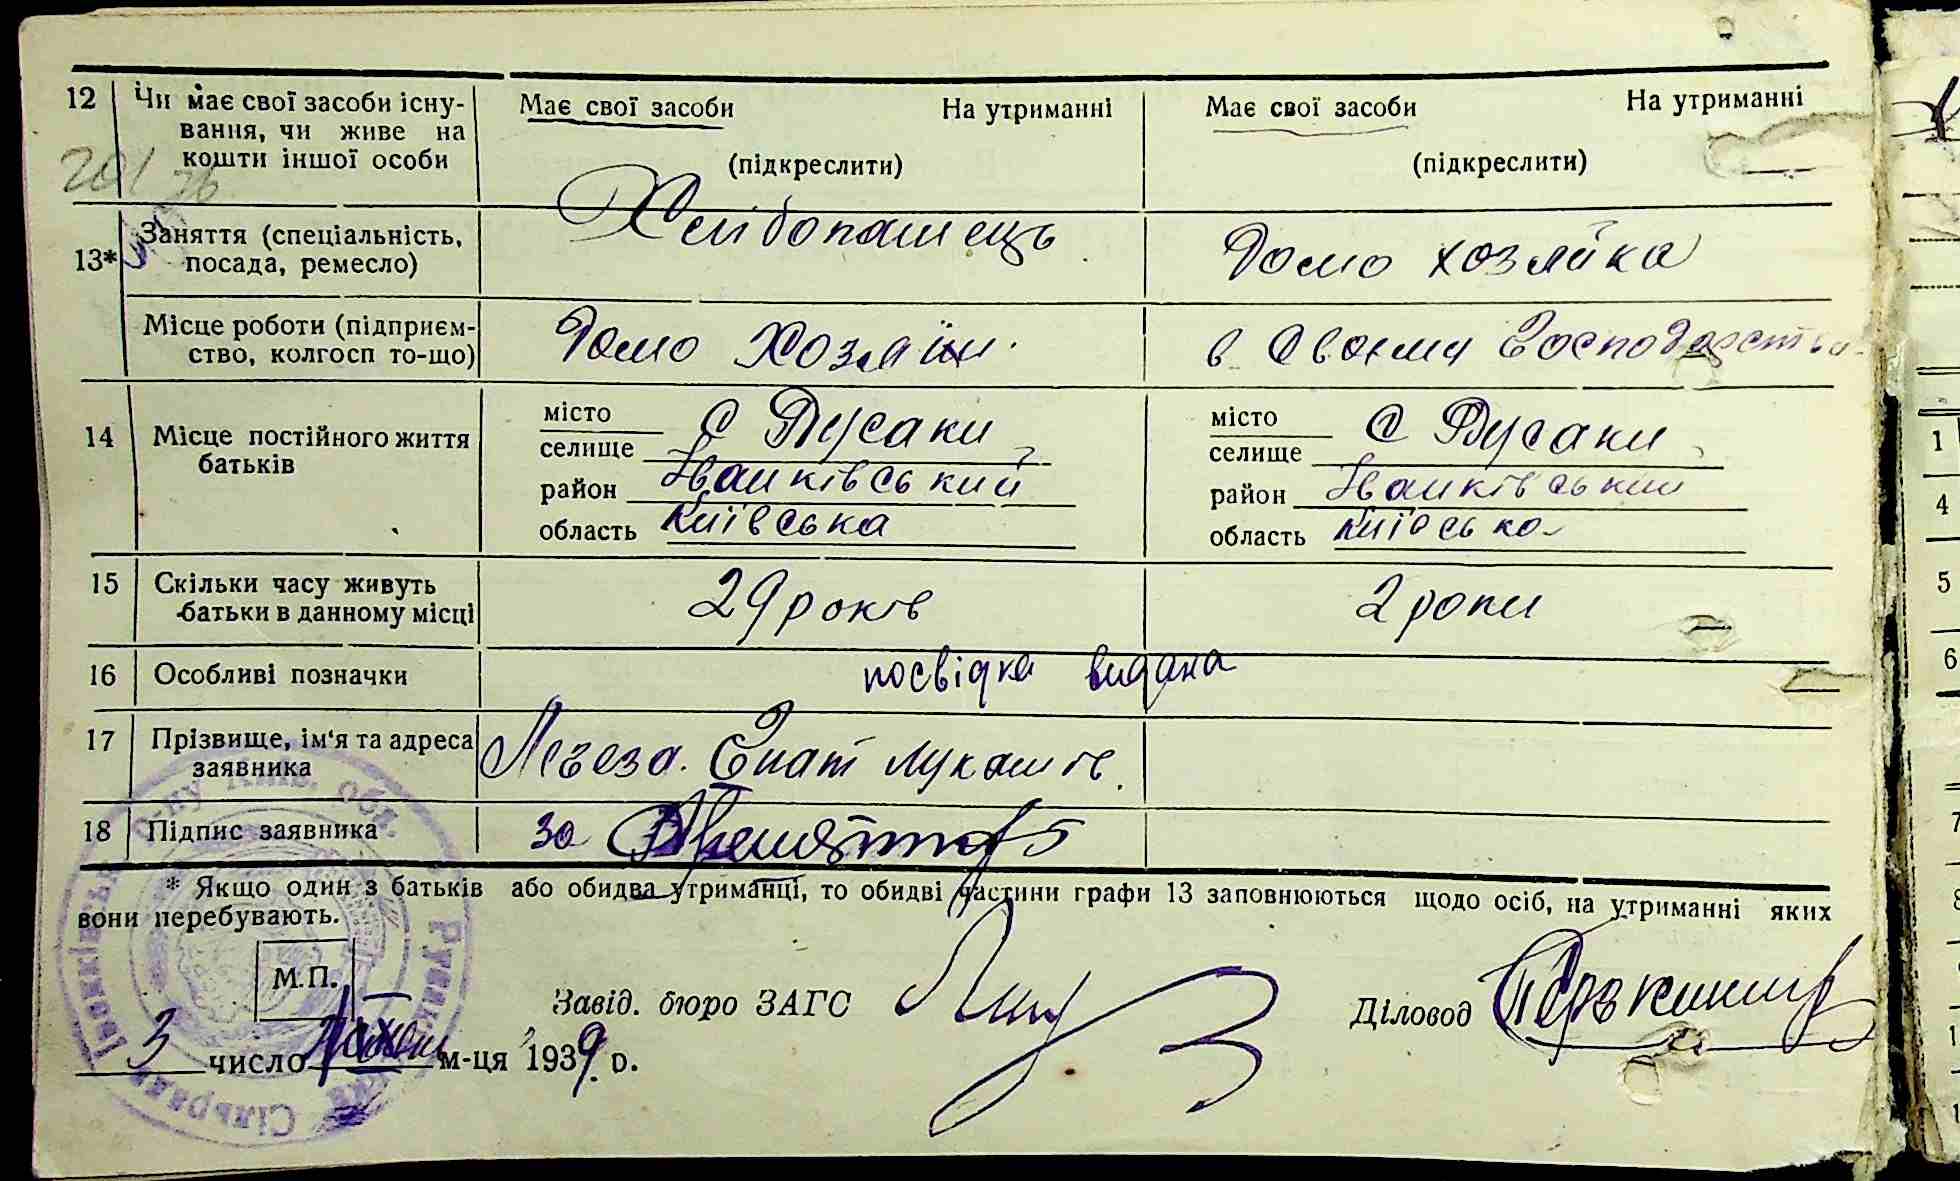 12 Чи має свої засоби існу- Має свої засоби На утриманні Має свої засоби На утриманні
вання, чи живе на
кошти іншої особи (підкреслити) (підкреслити)
201
76
13* Заняття (спеціальність, Хлібопашець Домо хозяйка
посада, ремесло)
Місце роботи (підприєм- Домо Хозяїн. в своєму Господарстві
ство, колгосп то-що)
14 Місце постійного життя місто С Русаки місто С Русаки
батьків селище селище
район Іванківський район Іванківський
область Київська область Київська
15 Скільки часу живуть 29 років 2 роки
батьки в данному місці
16 Особливі позначки посвідка видана
17 Прізвище, ім'я та адреса Легеза. Гнат Лукашів.
заявника
18 Підпис заявника за
* Якщо один з батьків або обидва утриманці, то обидві частини графи 13 заповнюються щодо осіб, на утриманні яких
вони перебувають.
М.П.
Завід. бюро ЗАГС Діловод
3 число м-ця 1939 р.
р-ну Київ. обл.
Сільрада
1
4
5
6
7
8